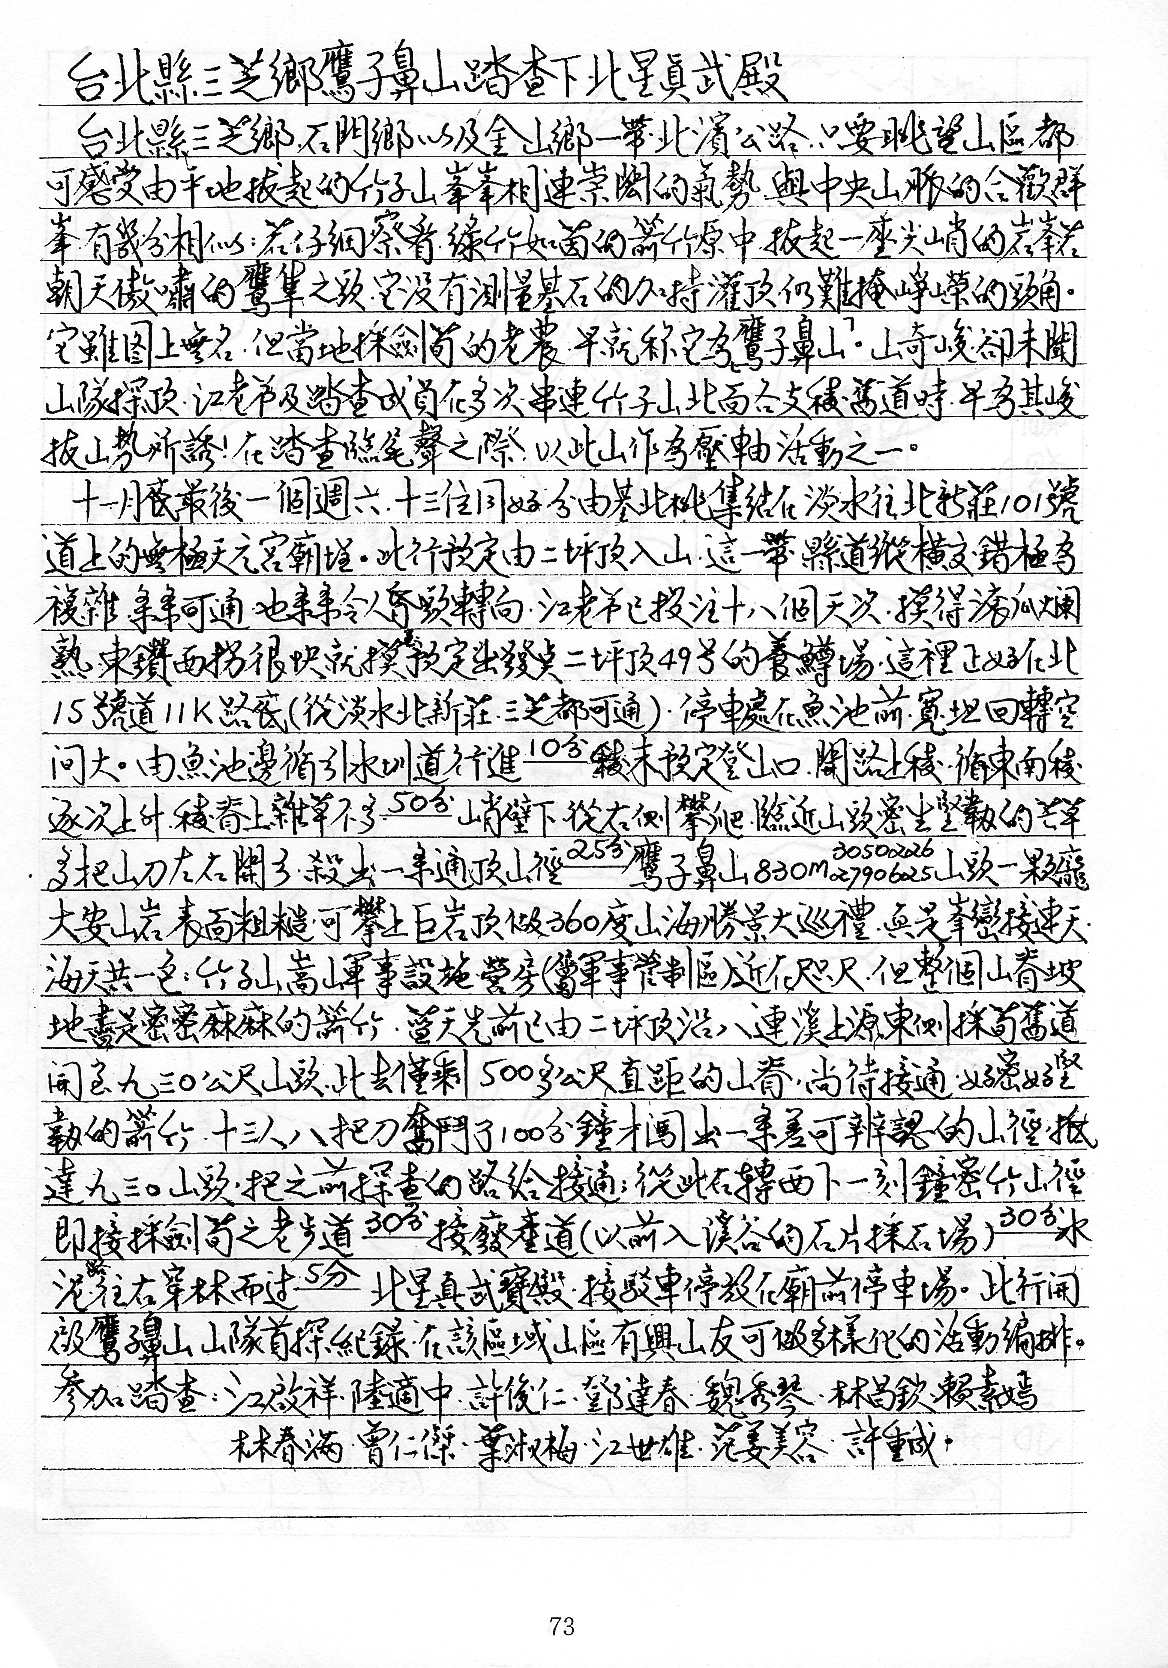 台北縣三芝鄉鷹子鼻山踏查下北星真武殿
台北縣三芝鄉.石門鄉以及金山鄉一帶北濱公路.只要眺望山區都
可感受由平地拔起的竹子山峯峯相連崇闊的氣勢.與中央山脈的合歡群
峯.有幾分相似:若仔細察看.綠竹如茵的箭竹原中.拔起一座尖峭的岩峯若
朝天傲嘯的鷹隼之頭.它没有測量基石的加持灌頂仍難掩崢嶸的頭角。
它雖图上無名.但當地採劍筍的老農.早就称它為「鷹子鼻山」。山奇峻卻未聞
山隊探頂.江老爷及踏查成員在多次串連竹子山北面各支稜舊道時.早為其峻
拔山勢所誘!在踏查臨尾聲之際:以此山作為壓軸活動之一。
十一月底最後一個週六.十三位同好分由基北桃集結在淡水往北新莊101號
道上的無極天元宮廟埕。此行預定由二坪頂入山.這一帶縣道縱橫交錯極為
複雜.条条可通.也条条令人昏頭轉向.江老爷已投注十八個天次.摸得滾瓜爛
熟.東鑽西拐很快就摸至預定出發点二坪頂49号的養鱒場.這裡正好在北
15號道11K路底(從淡水北新莊.三芝都可通).停車處在魚池前.寬坦回轉空
间大。由魚池邊循引水圳道行進10分稜末預定登山口.開路上稜.循東南稜
逐次上升.稜脊上雜草不多50分峭壁下從右側攀爬.臨近山頭密生堅韌的芒草
多把山刀左右開弓.殺出一条通頂山徑25分鷹子鼻山830m 3050226 2790625山頭一顆龐
大安山岩表面粗糙.可攀上巨岩頂做360度山海勝景大巡禮.真是峯巒接連天.
海天共一色:竹子山嵩山軍事設施營房(屬軍事管制區)近在咫尺.但整個山脊坡
地盡是密密麻麻的箭竹.藍天先前已由二坪頂沿八連溪上源東側採筍舊道
開至九三〇公尺山頭.此去僅剩500多公尺直距的山脊.尚待接通.好密好堅
韌的箭竹.十三人八把刀奮鬥了100分鐘才闯出一条差可辨認的山徑.抵
達九三〇山頭.把之前探查的路給接通:從此右轉西下一刻鐘密竹山徑
即接採劍筍之老步道30分接廢產道(以前入溪谷的石片採石場)30分水
泥路往右穿林而过5分 北星真武寶殿.接駁車停放在廟前停車場。此行開
啟鷹子鼻山山隊首探紀錄.在該區域山區有興山友可做多樣化的活動編排。
參加踏查:江啟祥.陸適中.許俊仁.鄧達春.魏秀琴.林昌欽.賴素嫣
林春滿.曾仁傑.葉淑梅.江世雄.范姜美容.許重成.
73